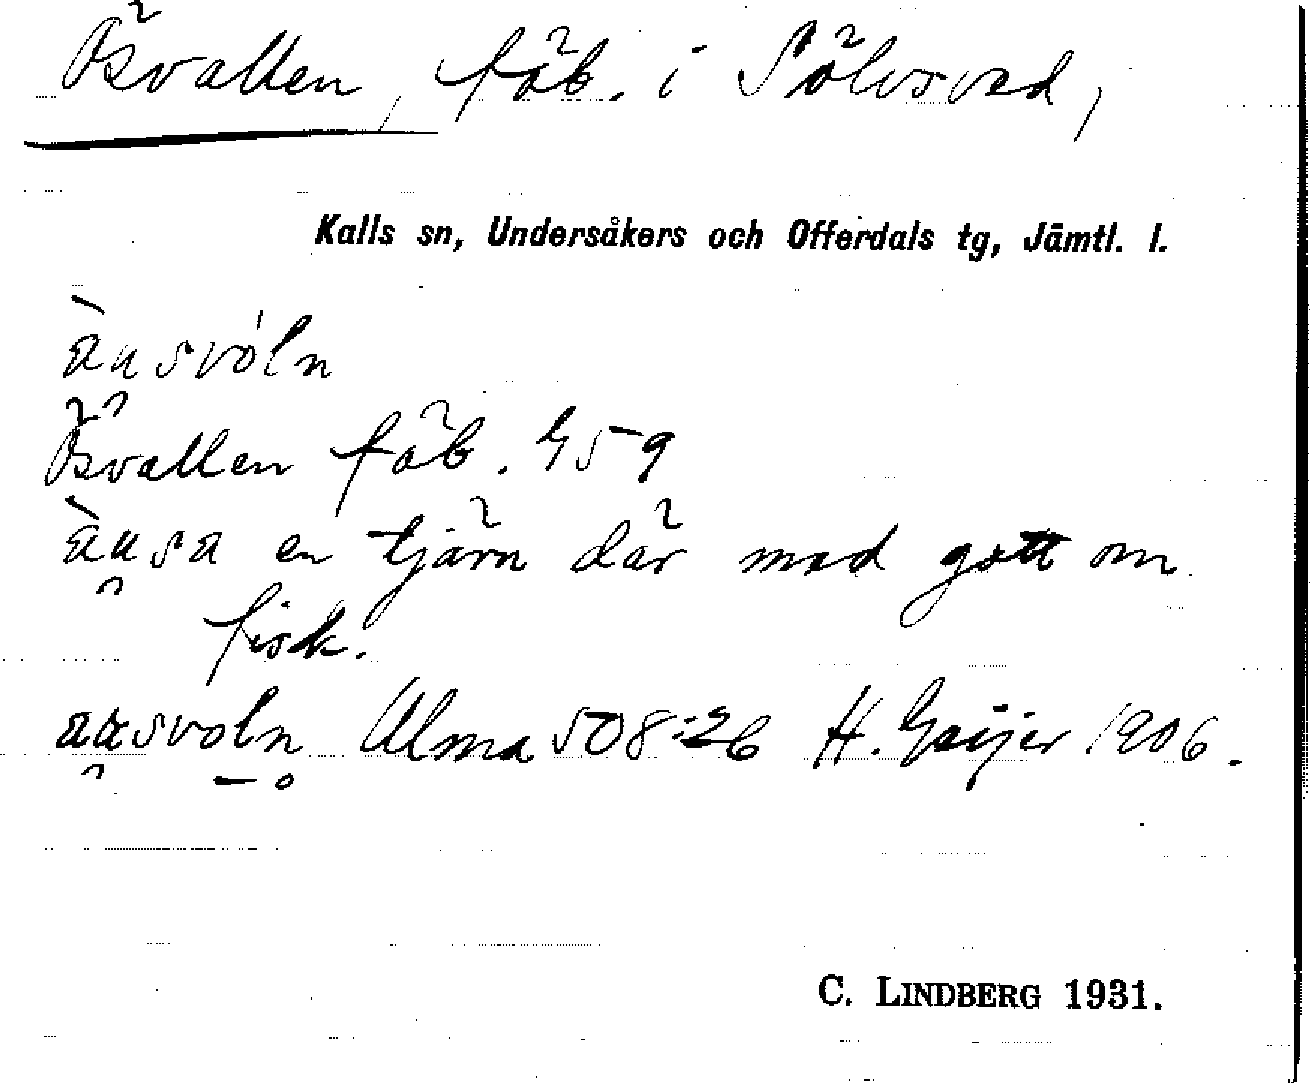 Ösvallen, fäb. i Sölvsved,
Kalls sn, Undersåkers och Offerdals tg, Jämtl. l.
ànsvóln
Ösvallen fäb. G59
ànsa en tjärn där med gott om
fisk.
aasvoln Ulma 508:26 H. Geijer 1906.
C. LINDBERG 1931.